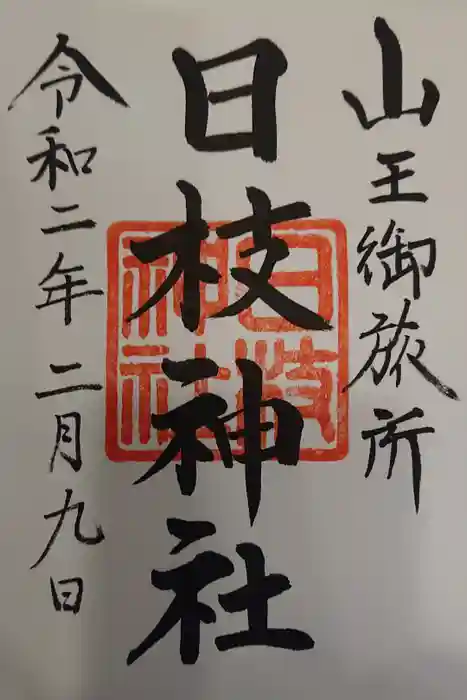 山王御旅所
日枝神社
日枝
神社
令和二年二月九日